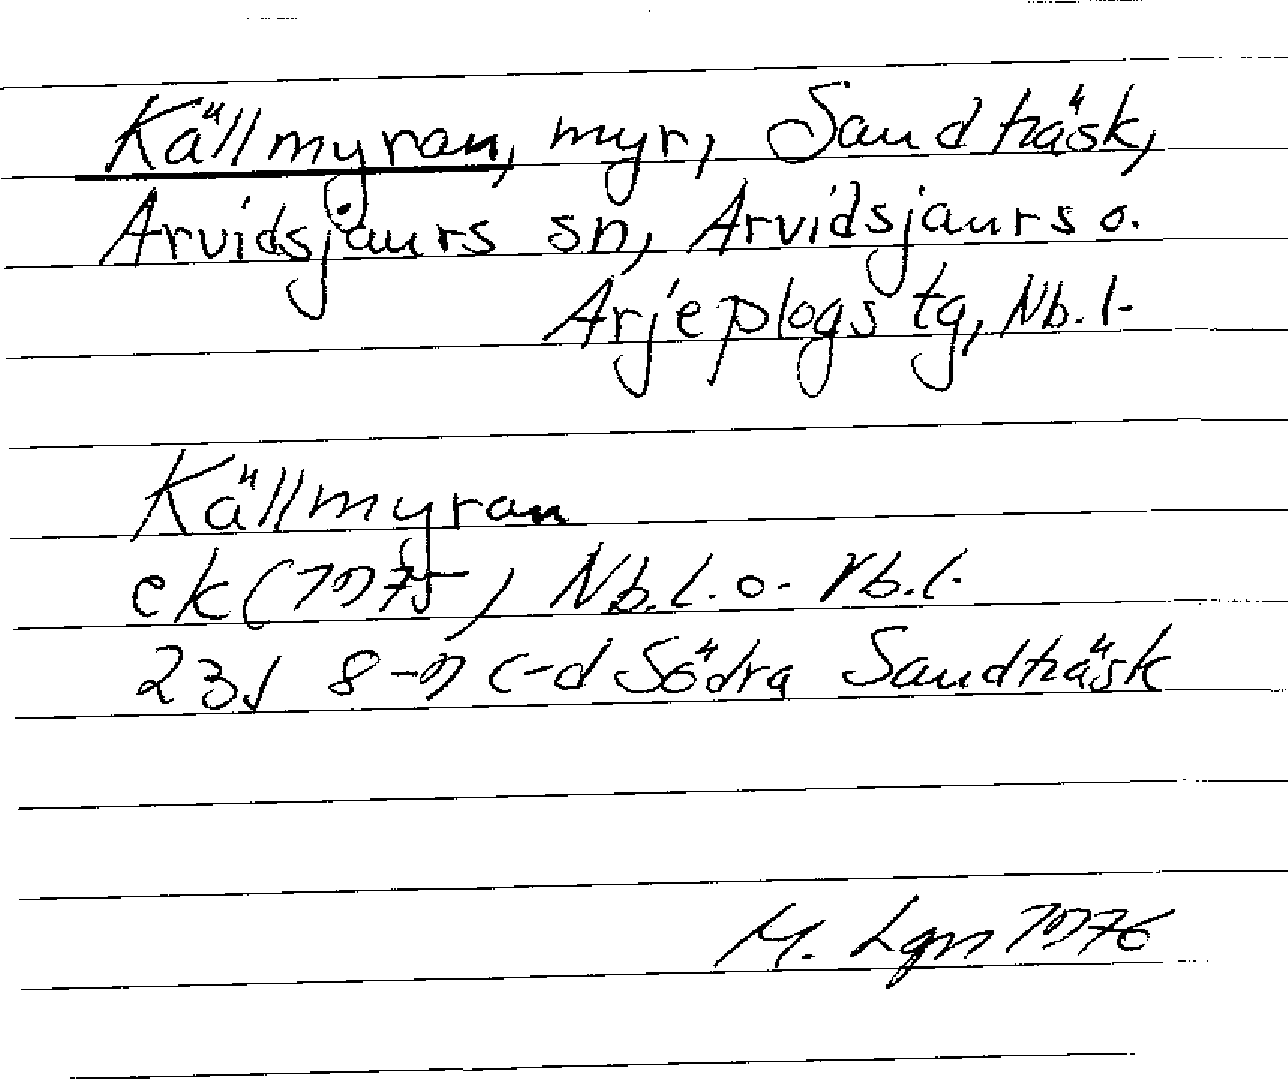 Källmyran, myr, Sandträsk,
Arvidsjaurs sn, Arvidsjaurs o.
Arjeplogs tg, Nb. l.
Källmyran
ek (1975), Nb. l. o. Vb. l.
23J 8-9 c-d Södra Sandträsk
M. Lgn 1976